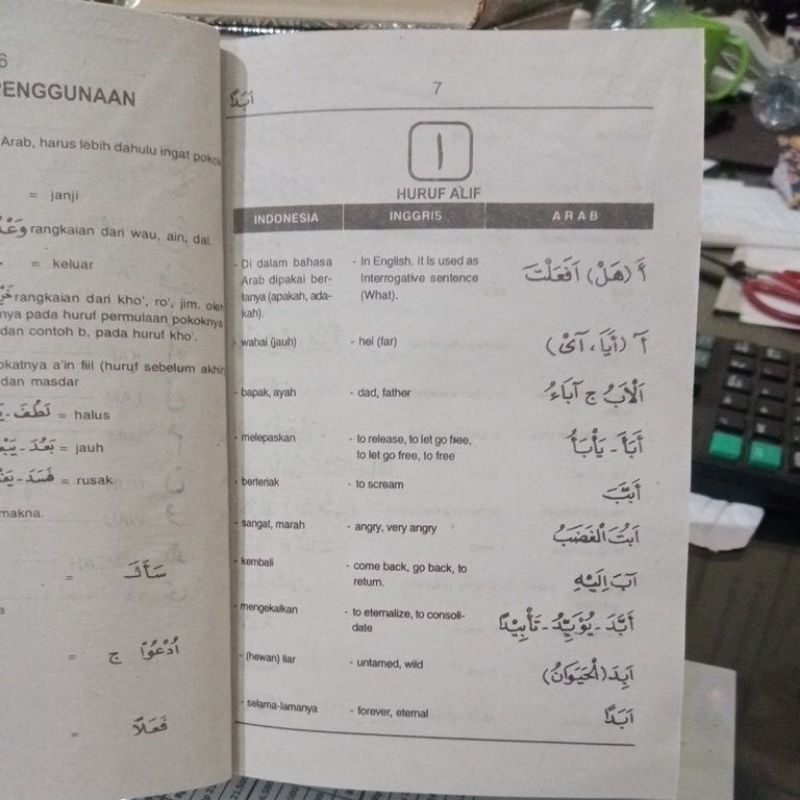 6
PENGGUNAAN
Arab, harus lebih dahulu ingat
= janji
rangkaian dari wau, ain, dal.
= keluar
rangkaian dari kho', ro', jim. oleh
nya pada huruf permulaan pokoknya
dan contoh b, pada huruf kho'.
huruf sebelum akhir
dan masdar
لَطُفَ - = halus
بَعُدَ - = jauh
فَسَدَ - = rusak
makna.
=
= اُدْعُوْا ج
= فَعَلاً
اَبَدًا
7
ا
HURUF ALIF
INDONESIA INGGRIS ARAB
- Di dalam bahasa Arab dipakai ber-
tanya (apakah, ada-
kah).
- In English. It Is used as
Interrogative sentence
(What).
أَ (هَلْ) اَفَعَلْتَ
- wahai (jauh) - hei (far) آ (أَيَا، آيْ)
- bapak, ayah - dad, father اَلْاَبُ ج آبَاءُ
- melepaskan - to release, to let go free,
to let go free, to free
أَبَأَ - يَأْبَأُ
- berteriak - to scream أَبَّبَ
- sangat, marah - angry, very angry اَبْتُ الْغَضَبُ
- kembali - come back, gp back, to
return.
آبَ اِلَيْهِ
- mengekalkan - to eternalize, to consoli-
date
أَبَّدَ - يُؤَبِّدُ - تَأْبِيْدًا
- (hewan) liar - untamed, wild اَبِدَ (الْحَيَوَانُ)
- selama-lamanya - forever, eternal اَبَدًا